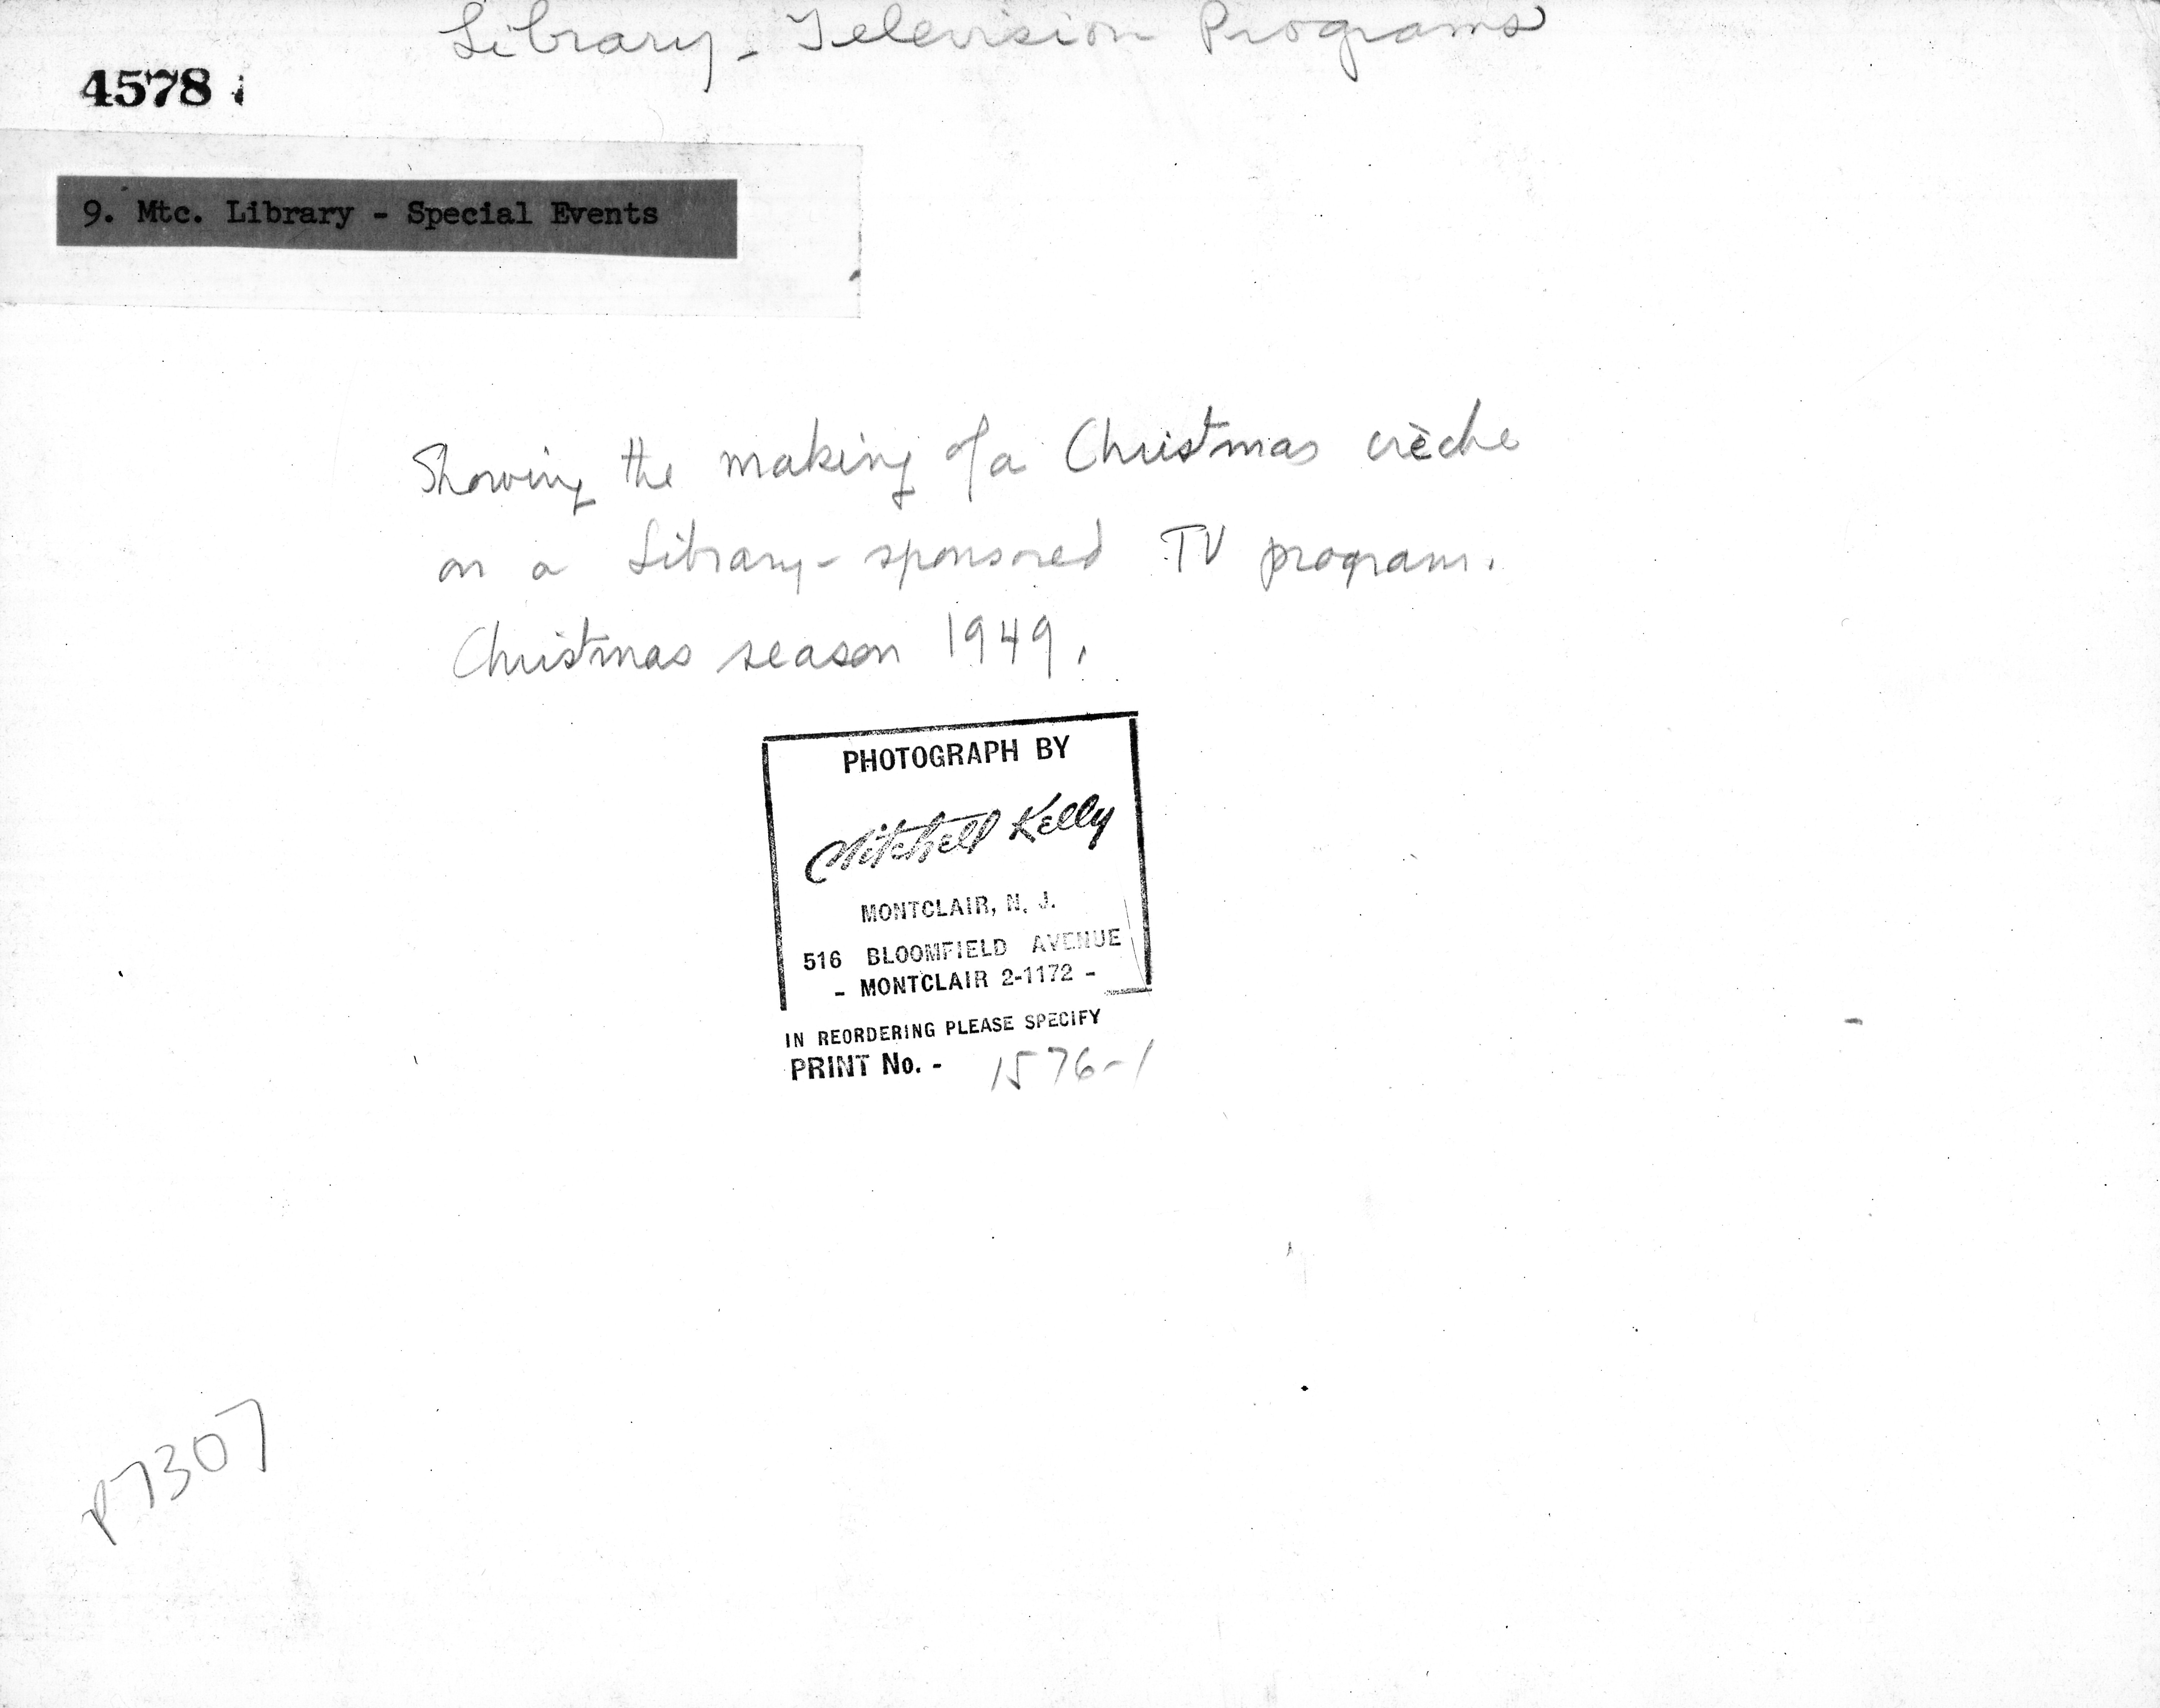 Library - Television Programs
4578
9. Mtc. Library - Special Events
Showing the making of a Christmas crèche
on a Library-sponsored TV program.
Christmas season 1949.
PHOTOGRAPH BY
Mitchell Kelly
MONTCLAIR, N. J.
516 BLOOMFIELD AVENUE
- MONTCLAIR 2-1172 -
IN REORDERING PLEASE SPECIFY
PRINT No. - 1576-1
P7307